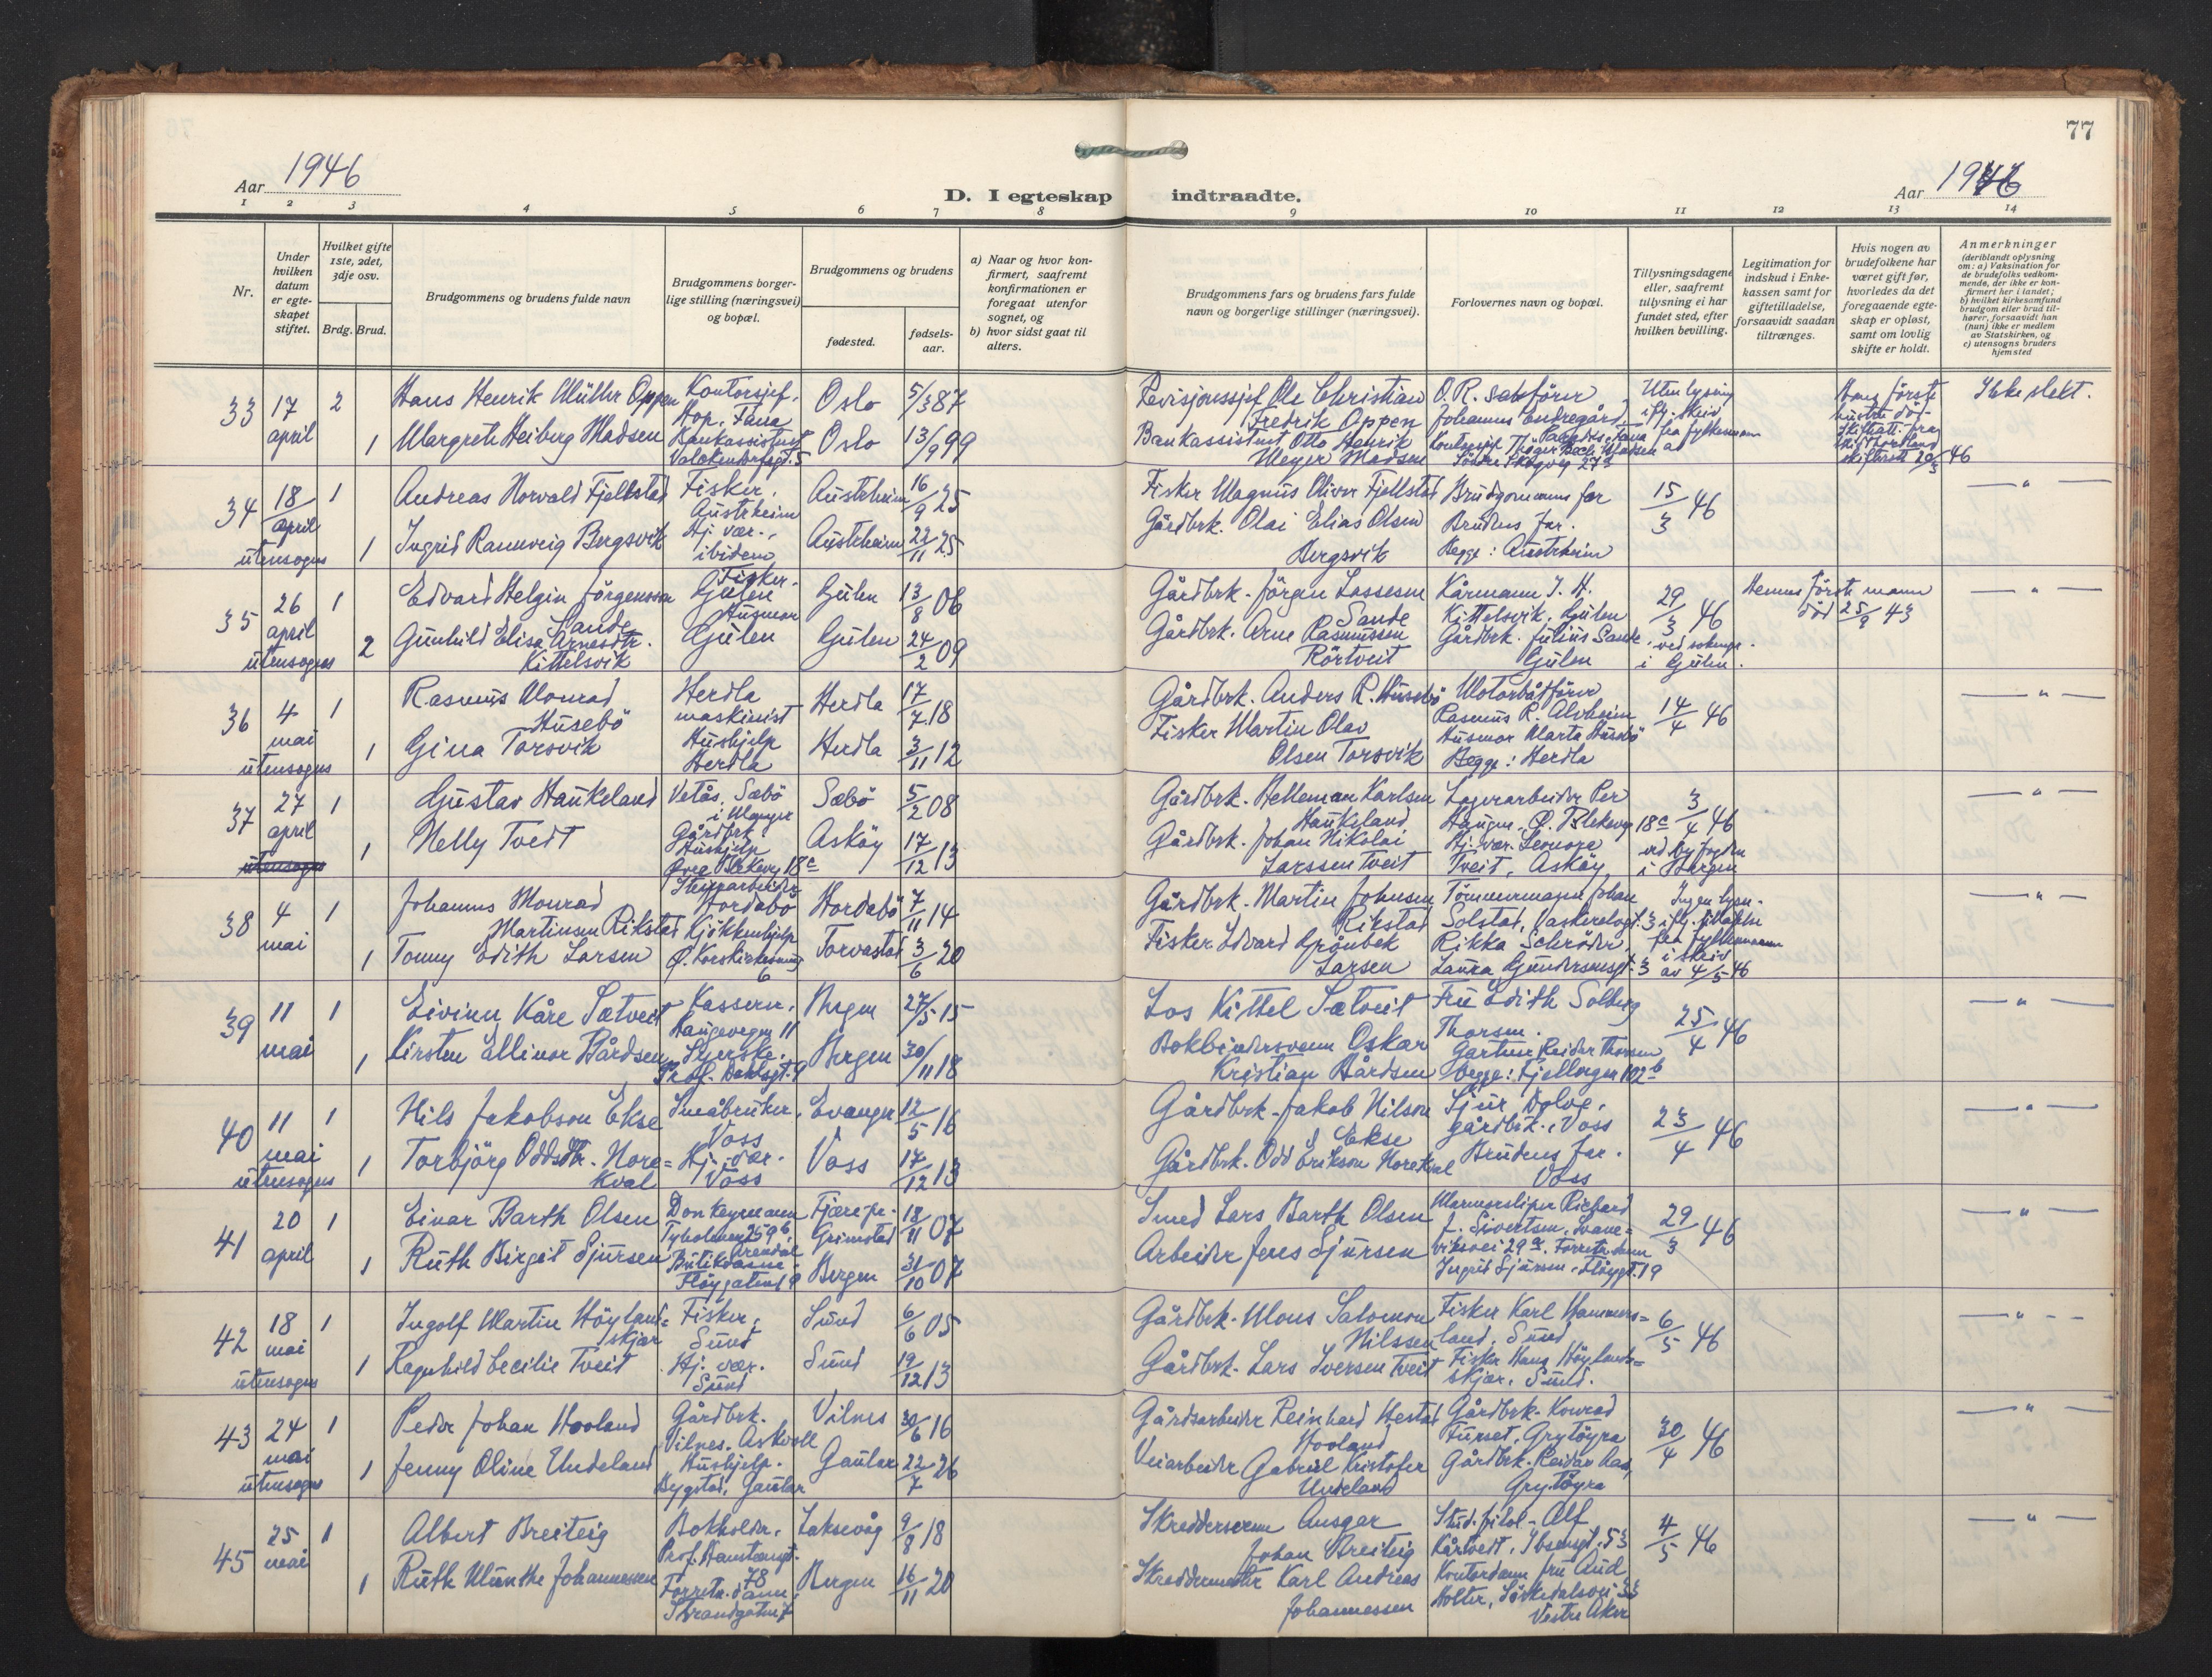 77
Aar 1946
Aar 1946
D. I egteskap indtraadte.
1 2 3 4 5 6 7 8 9 10 11 12 13 14
Nr.
Under hvilken datum er egteskapet stiftet.
Hvilket gifte 1ste, 2det, 3dje osv.
Brdg. Brud.
Brudgommens og brudens fulde navn
Brudgommens borgerlige stilling (næringsvei) og bopæl.
Brudgommens og brudens
fødested.
fødselsaar.
a) Naar og hvor konfirmert, saafremt konfirmationen er foregaat utenfor sognet, og
b) hvor sidst gaat til alters.
Brudgommens fars og brudens fars fulde navn og borgerlige stillinger (næringsvei).
Forlovernes navn og bopæl.
Tillysningsdagene eller, saafremt tillysning ei har fundet sted, efter hvilken bevilling.
Legitimation for indskud i Enkekassen samt for giftetilladelse, forsaavidt saadan tiltrænges.
Hvis nogen av brudefolkene har været gift før, hvorledes da det foregaaende egteskap er opløst, samt om lovlig skifte er holdt.
Anmerkninger
(deriblandt oplysning om: a) Vaksination for de brudefolks vedkommende, der ikke er konfirmert her i landet;
b) hvilket kirkesamfund brudgom eller brud tilhører, forsaavidt han (hun) ikke er medlem av Statskirken, og
c) utensogns bruders hjemsted
33 17 april 2 Hans Henrik Müller Oppen Kontorsjef, Hop, Fana Oslo 5/3 87
1 Margrete Heiberg Madsen Bankassistent Valckendorfsgt. 5 Oslo 13/9 99
Revisjonssjef Ole Christian Fredrik Oppen O.R. sakfører Johannes Endregård, Paradis, Fana
Bankassistent Otto Henrik Meyer Madsen Kontorsjef Thøger Bech Madsen
Uten lysning ifl. skriv fra fylkesmann
Hans første hustru død. 46
Ikke slekt.
34 18/april utensogns 1 Andreas Norvald Fjellstad Fisker, Austrheim Austrheim 16/9 25
1 Ingrid Rannveig Bergsvik Hj. vær., ibidem Austrheim 22/11 25
Fisker Magnus Oliver Fjellstad Brudgommens far 15/3 46 — " —
Gårdbrk. Olai Elias Olsen Bergsvik Brudens far. Begge: Austrheim
35 26 april utensogns 1 Edvard Helgin Jörgensson Sande Fisker. Gulen Gulen 13/8 06
2 Gunhild Elisa Arnesdtr. Kittelsvik Husmor Gulen Gulen 24/2 09
Gårdbrk. Jörgen Lassesen Sande Kårmann J. H. Kittelsvik, Gulen 29/3 46 Hennes første mann død 25/9 43 — " —
Gårdbrk. Arne Rasmussen Rörtveit Gårdbrk. Julius Sande, Gulen ved soknepr. i Gulen.
36 4 mai utensogns 1 Rasmus Monrad Husebö Herdla maskinist Herdla 17/7 18
1 Gina Torsvik Hushjelp Herdla Herdla 3/11 12
Gårdbrk. Anders R. Husebö Motorbåtfører Rasmus R. Alvheim 14/4 46 — " —
Fisker Martin Olav Olsen Torsvik Husmor Marta Husebö Begge: Herdla
37 27 april utensogns 1 Gustav Haukeland Vetås, Sæbö i Manger Gårdbrk. Sæbö 5/2 08
1 Nelly Tvedt Hushjelp Øvre Blekevg 18c Asköy 17/12 13
Gårdbrk. Helleman Karlsen Haukeland Lagerarbeider Per Haugen, Ø. Blekevg 18c 3/4 46 — " —
Gårdbrk. Johan Nikolai Larssen Tveit Hj. vær. Leonore Tveit, Asköy ved byfogden i Bergen
38 4 mai 1 Johannes Monrad Martinsen Rikstad Hordabö Hordabö 7/11 14
1 Tonny Edith Larsen Kjökkenhjelp Ø. Korskirkesmug 6 Torvastad 3/6 20
Gårdbrk. Martin Johnsen Rikstad Tömmermann Johan Solstad, Vaskerelvgt. 3 — " —
Fisker Edvard Grönbek Larsen Rikka Schröder, Laura Gundersensgt. 3
Ingen lysn. ifl. tillatelse fra fylkesmann i skriv av 4/5 46
39 11 mai 1 Eivinn Kåre Sætveit Kasserer, Haugevegen 11 Bergen 27/5 15
1 Kirsten Ellinor Bårdsen Syerske. Prof. Dahlsgt. 9 Bergen 30/11 18
Los Kittel Sætveit Fru Edith Solberg Thorsen. 25/4 46 — " —
Bokbindersvenn Oskar Kristian Bårdsen Gartner Reidar Thorsen begge: Fjellvegen 102b
40 11 mai utensogns 1 Nils Jakobson Ekse Småbruker, Voss Evanger 12/5 16
1 Torbjörg Oddsdtr. Nore=kval Hj. vær. Voss Voss 17/12 13
Gårdbrk. Jakob Nilson Ekse Sjur Dolve, gårdbrk., Voss 23/4 46 — " —
Gårdbrk. Odd Erikson Norekval Brudens far. Voss
41 20 april 1 Einar Barth Olsen Donkeymann Tyholmen 259b, Arendal Fjære pr. Grimstad 18/11 07
1 Ruth Birgit Sjursen Butikdame Flöygaten 19 Bergen 31/10 07
Smed Lars Barth Olsen Marmorsliper Richard J. Sivertsen, Svane=viksvei 29a. 29/3 46 — " —
Arbeider Jens Sjursen Forretn.dame Ingrid Sjursen, Flöygt. 19
42 18 mai utensogns 1 Ingolf Martin Höyland=skjær Fisker, Sund Sund 6/6 05
1 Ragnhild Cecilie Tveit Hj. vær. Sund Sund 19/12 13
Gårdbrk. Mons Salomon Nilssen Fisker Karl Hammers=land, Sund 6/5 46 — " —
Gårdbrk. Lars Iversen Tveit Fisker Hans Höylands=skjær, Sund.
43 24 mai utensogns 1 Peder Johan Hovland Gårdbrk. Vilnes, Askvoll Vilnes 30/6 16
1 Jenny Oline Undeland Hushjelp. Bygstad, Gaular Gaular 22/7 26
Gårdsarbeider Reinhard Hestad Hovland Gårdbrk. Konrad Furset, Grytöyra 30/4 46 — " —
Veiarbeider Gabriel Kristofer Undeland Gårdbrk. Reidar Aas, Grytöyra
45 25 mai 1 Albert Breiteig Bokholder, Prof. Hanstensgt. 78 Laksevåg 9/8 18
1 Ruth Munthe Johannessen Forretn.dame, Strandgaten 7 Bergen 16/11 20
Skreddersvenn Ansgar Johan Breiteig Stud. filol. Alf Kårtveit, Ibsensgt. 53 4/5 46 — " —
Skreddermester Karl Andreas Johannessen Kontordame fru Aud Holter, Sörkedalsvei 33 Vestre Aker